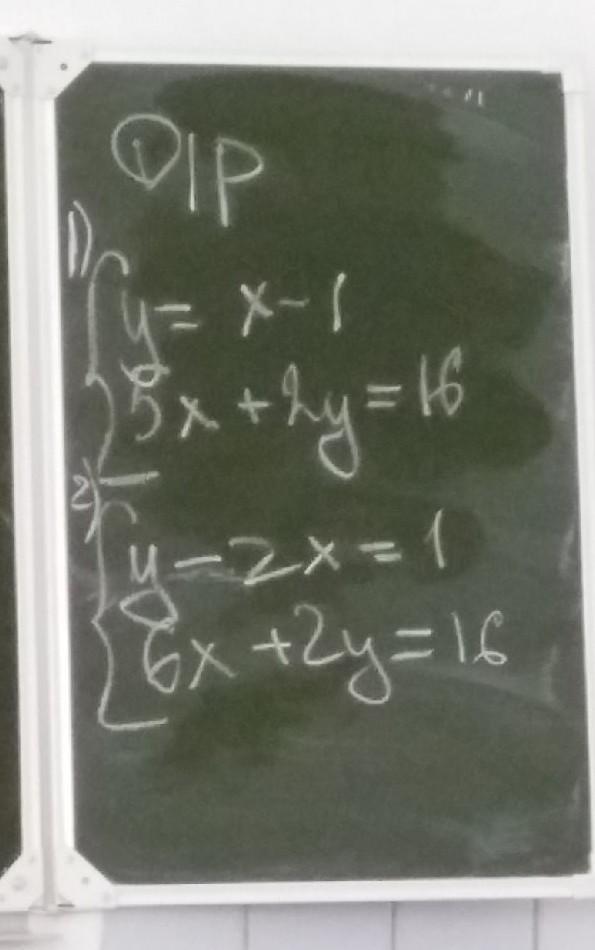 Д/Р
1)
y = x - 1
5x + 2y = 16
2)
y - 2x = 1
6x + 2y = 16